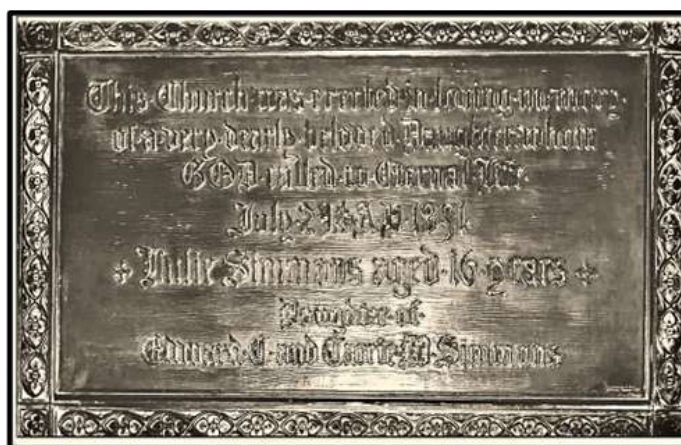 This Church was erected in loving memory
of a very dearly beloved Daughter whom
GOD called to Eternal Life
July A.D. 1891
Simmons aged 16 years
Daughter of
Edward C. and Carrie Simmons